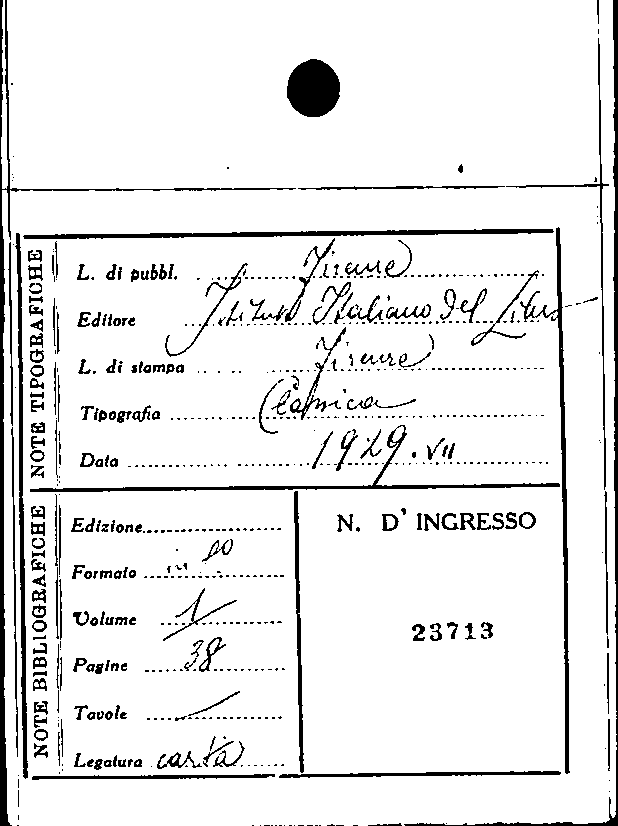 NOTE TIPOGRAFICHE
L. di pubbl. Firenze
Editore Istituto Italiano Del Libro
L. di stampa Firenze
Tipografia Classica
Data 1929.VII
NOTE BIBLIOGRAFICHE
Edizione
Formato in
Volume 1
Pagine 38
Tavole
Legatura carta
N. D' INGRESSO
23713